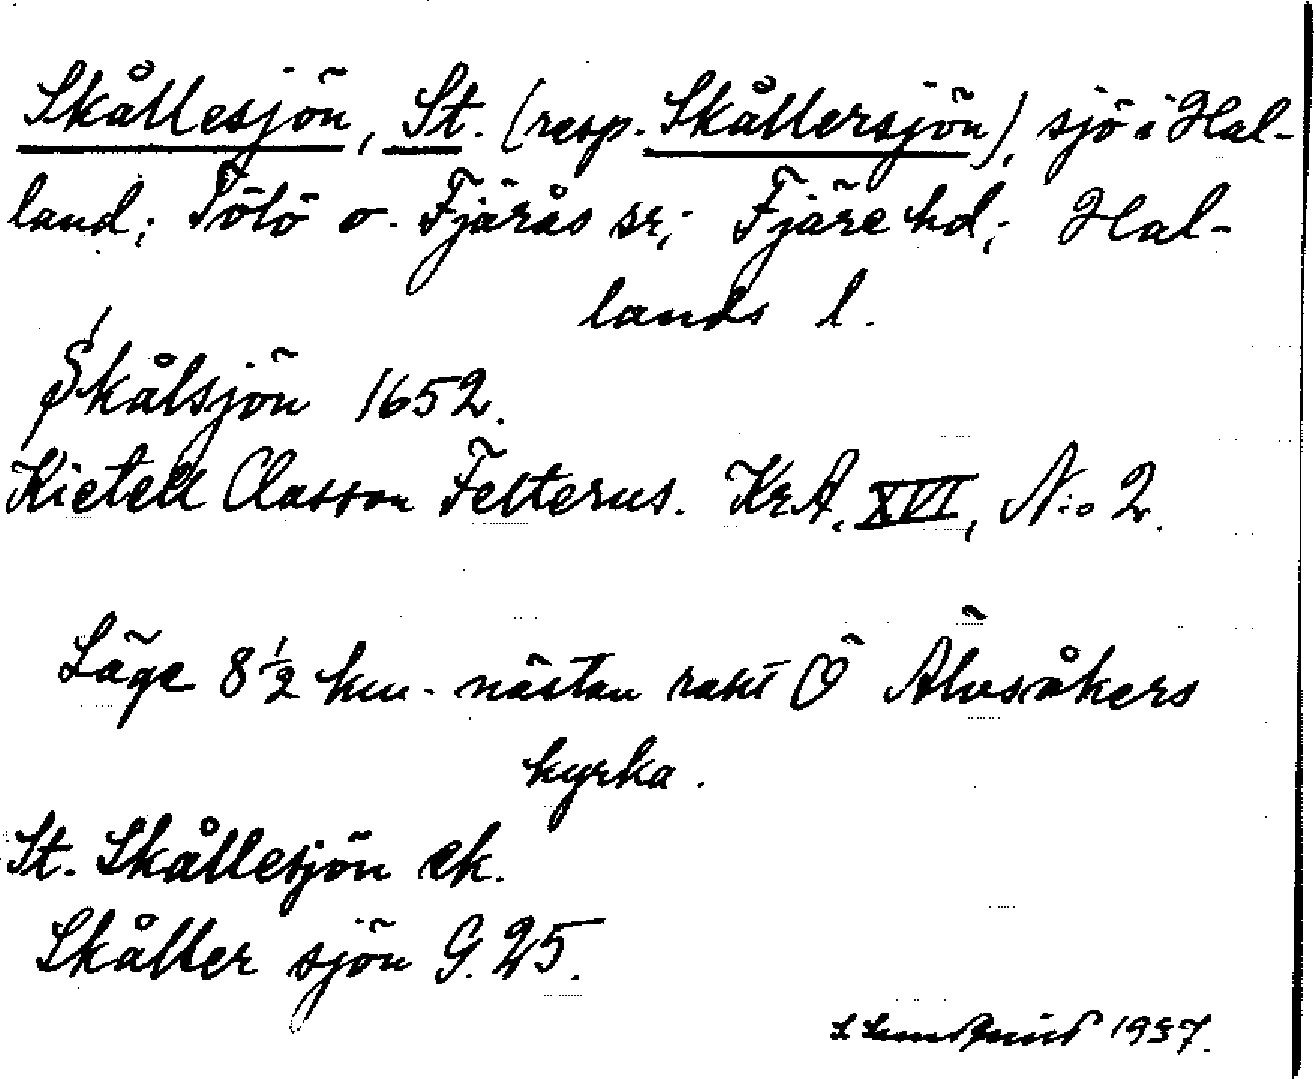 Skållesjön, St. (resp. Skållersjön), sjö i Hal-
land; Tölö o. Fjärås sr; Fjäre hd; Hal-
lands l.
Skålsjön 1652.
Kietell Classon Felterus. KrA. XVI, N:o 2.
Läge 8 ½ km. nästan rakt Ö Älvsåkers
kyrka.
St. Skållesjön ek.
Skåller sjön G. 25.
S Lundquist 1937.